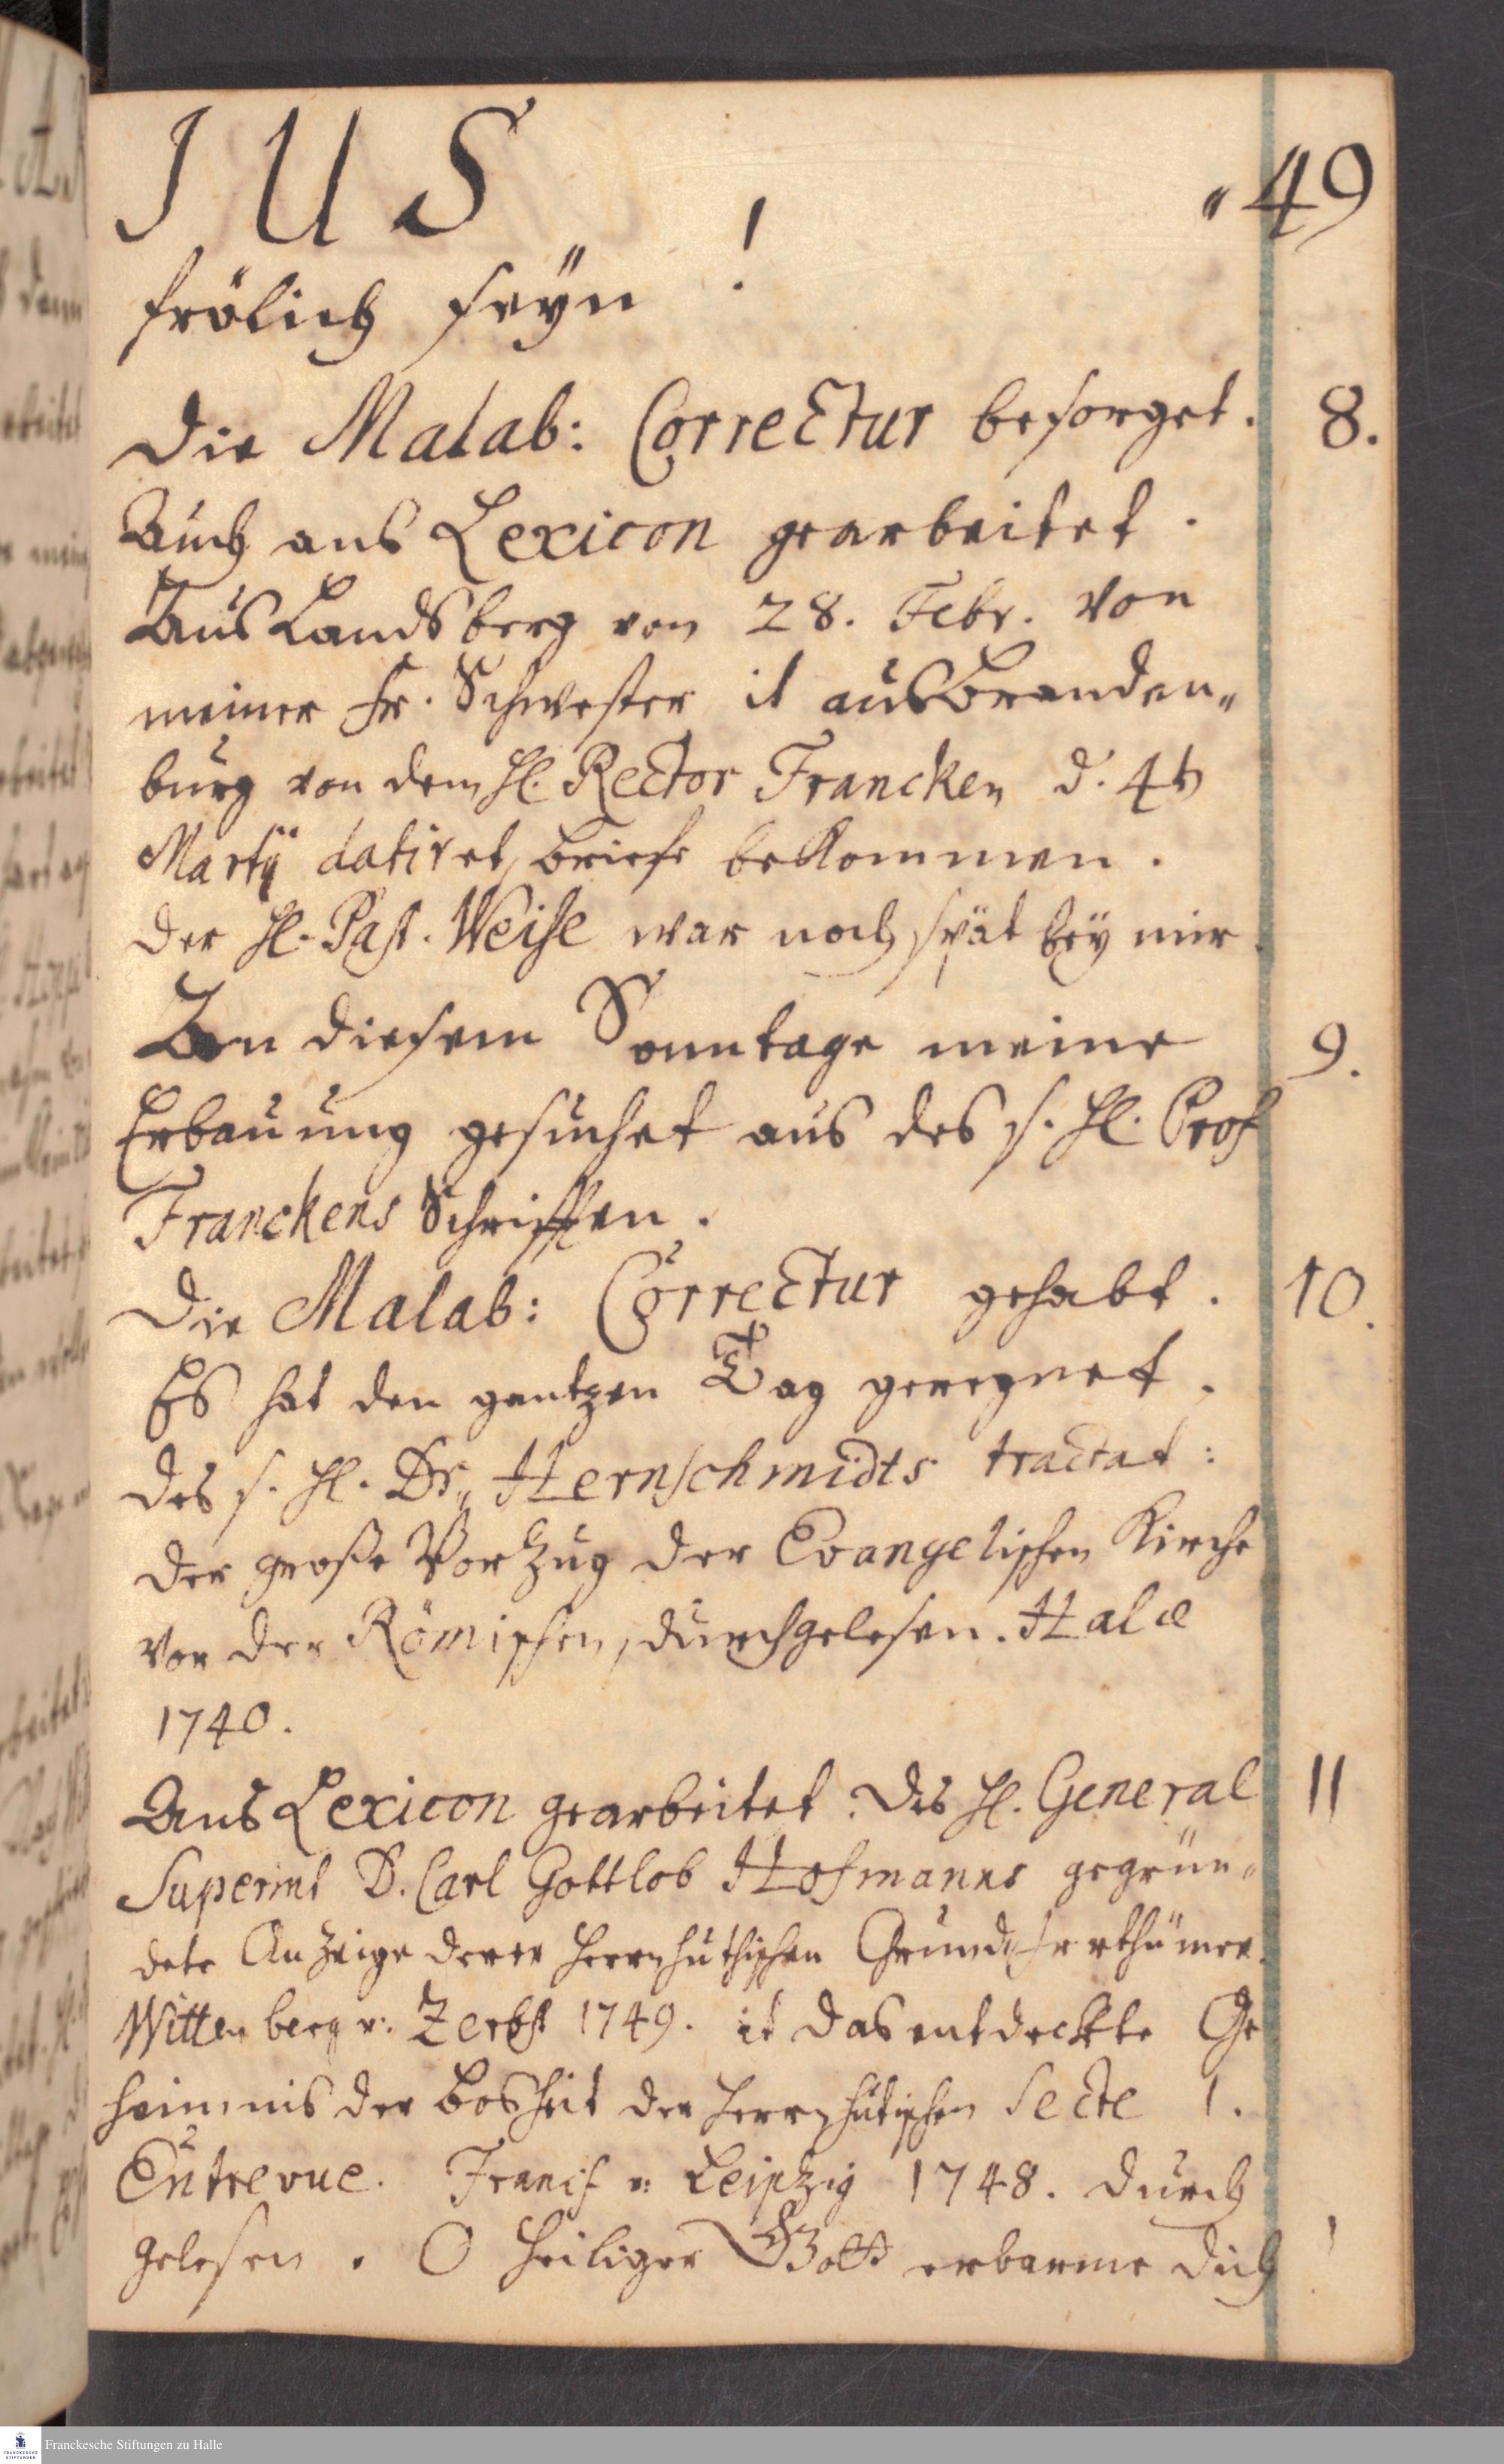 JUS
„49
frölich seÿn !
Die Malab: Correctur besorget. 8.
Auch ans Lexicon gearbeitet.
Aus Landsberg von 28. Febr. von
meiner Fr. Schwester it aus Branden„
burg von dem H. Rector Francken d. 4t
Martij datiret, Briefe bekommen.
Der H. Past. Weise war noch spät beÿ mir.
An diesem Sonntage meine 9.
Erbauung gesuchet aus des s. H. Prof
Franckens Schrifften.
Die Malab: Correctur gehabt. 10.
Es hat den gantzen Tag geregnet.
Des s. H. Dr„ Hernschmidts tractat:
der große Vorzug der Evangelischen Kirche
vor der Römischen, durchgelesen. Halæ
1740.
Ans Lexicon gearbeitet. Des H. General 11
Superint D. Carl Gottlob Hofmanns gegrün„
dete Anzeige derer Herrnhuthischen Grund Irrthümer.
Wittenberg u: Zerbst 1749. it das entdeckte Ge
heimnis der Bosheit der Herrnhutischen Secte 1.
Entrevue. Francf u: Leipzig 1748. durch
gelesen. O heiliger Gott erbarme dich !
Franckesche Stiftungen zu Halle